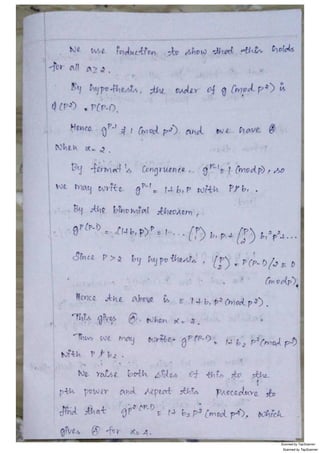 We use induction to show that this holds
for all α ≥ 2.
By hypothesis, the order of g (mod p²) is
φ(p²) = p(p-1).
Hence g^p-1 ≢ 1 (mod p²) and we have Ⓐ
when α = 2.
By fermat's congruence g^p-1 ≡ 1 (mod p), so
we may write g^p-1 = 1+b₁p with p∤b₁.
By the binomial theorem,
g^p(p-1) = (1+b₁p)^p = 1 - ... (p 1) b₁p + (p 2) b₁²p² + ...
Since p > 2 by hypothesis, (p 2) = p(p-1)/2 ≡ 0
(mod p).
Hence the above is ≡ 1+b₁p² (mod p³).
This gives Ⓐ when α = 3.
Thus we may write g^p(p-1) = 1+b₂p² (mod p³)
with p∤b₂.
We raise both sides of this to the
pth power and repeat this procedure to
find that g^p²(p-1) = 1+b₂p³ (mod p⁴), which
gives Ⓐ for
Scanned by TapScanner
Scanned by TapScanner